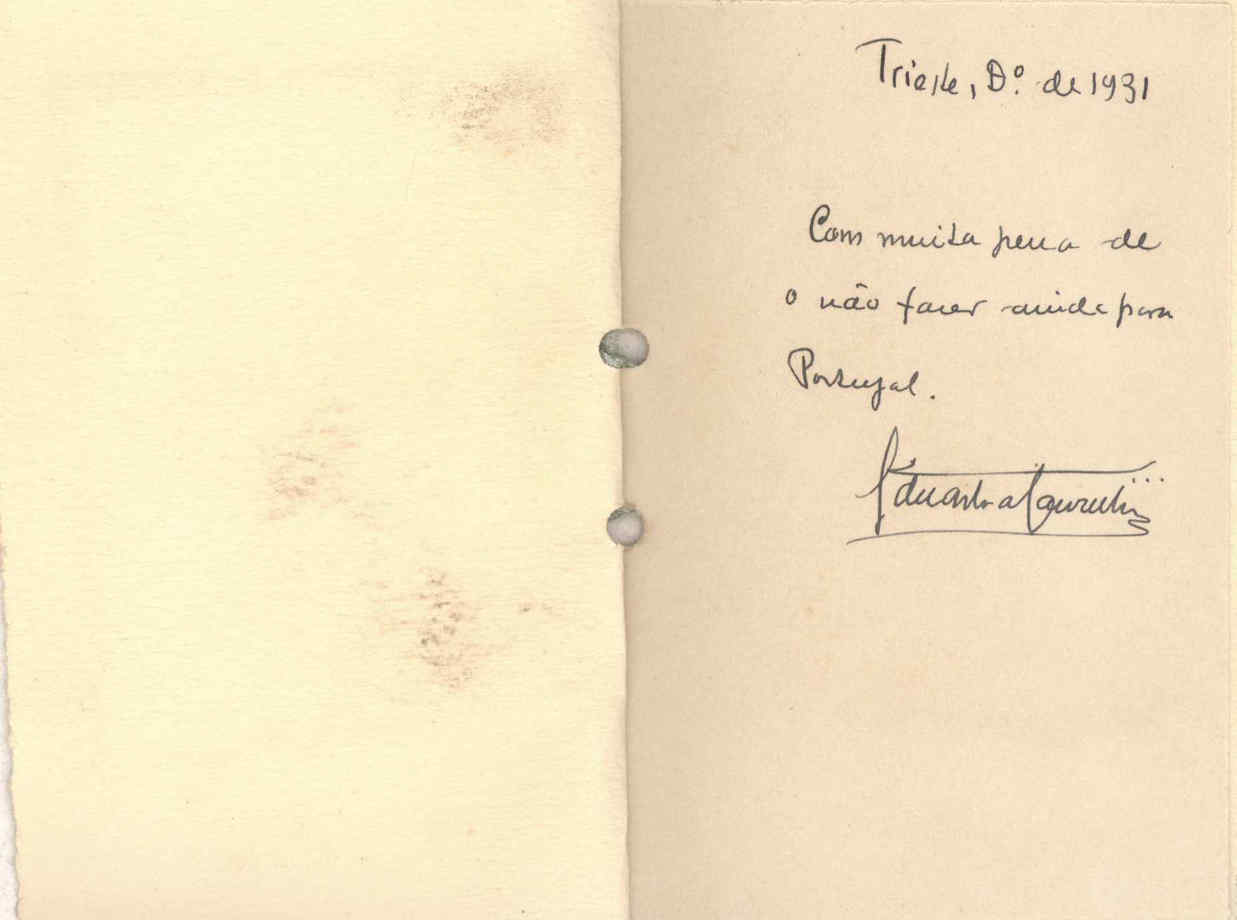 Trieste, D.º de 1931
Com muita pena de
o não fazer ainda para
Portugal.
Eduarda